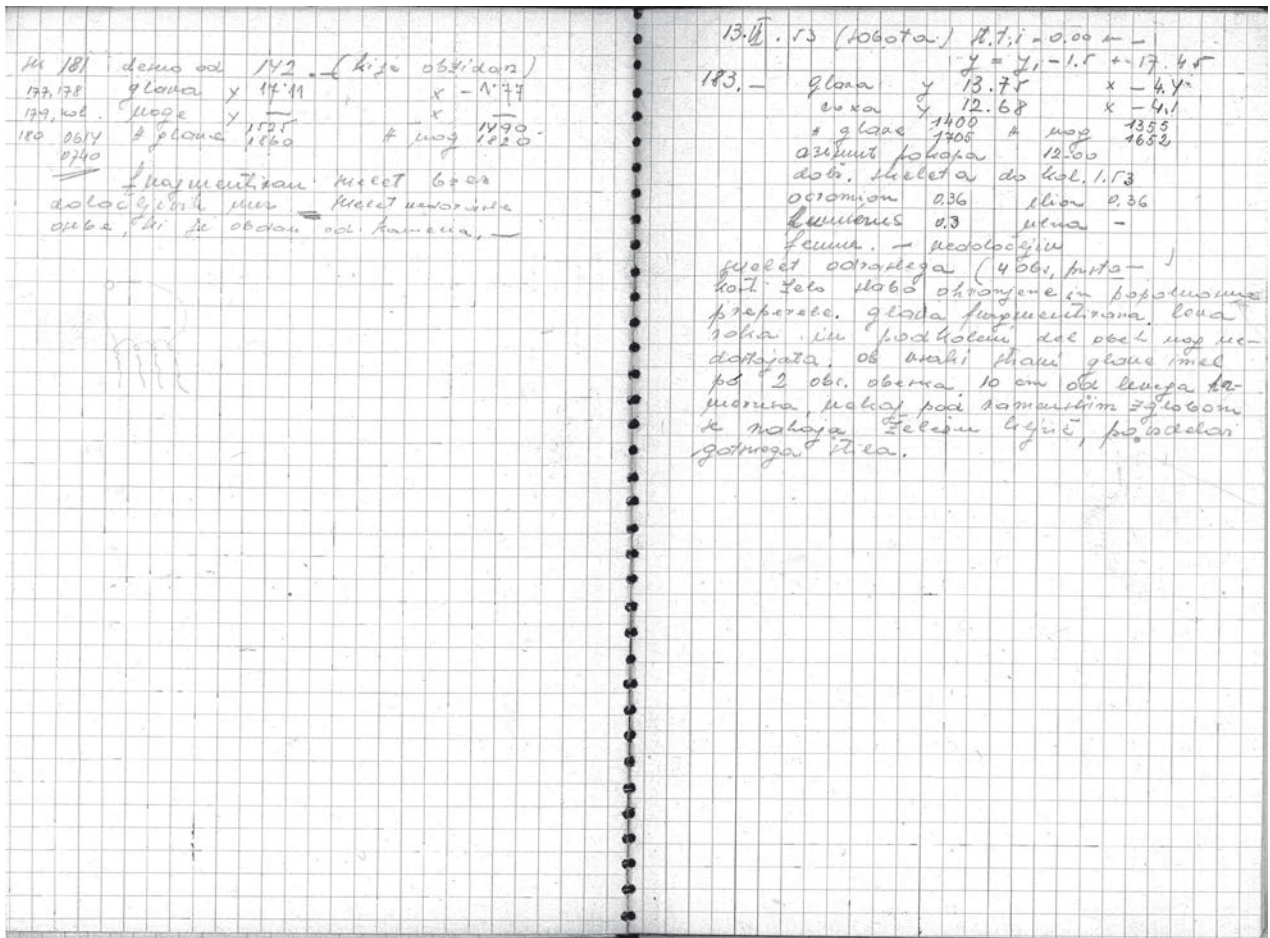 sk 181 desno od 142. — (ki je obzidan)
177, 178 glava y 17.11 x – 1.77
179, kol. noge y — x —
180 0614 # glave 1525 1860 # nog 1490 1820
0740
fragmentiran skelet brez
določljivih mer — skelet
osebe, ki je obdan od kamenja, —
13. . 53 (sobota) – 0.00
y = y, – 1.5 + 17.45
183. — glava y 13.75 x – 4.4
coxa y 12.68 x – 4.1
# glave 1400 1705 # nog 1355 1652
azimut pokopa 12-00
dolž. skeleta do kol. 1.53
acromion 0.36 ilion 0.36
humerus 0.3 ulna –
femur. – nedoločljiv
skelet odraslega (4 obs, prsta —
kosti zelo slabo ohranjene in popolnoma
preperele. glava fragmentirana. leva
roka in podkoleni del obeh nog ne-
dostajata. ob vsaki strani glave imel
po 2 obs. obenka 10 cm od levega hu-
merusa, nekaj pod ramenskim zglobom
se nahaja železen ključ, po